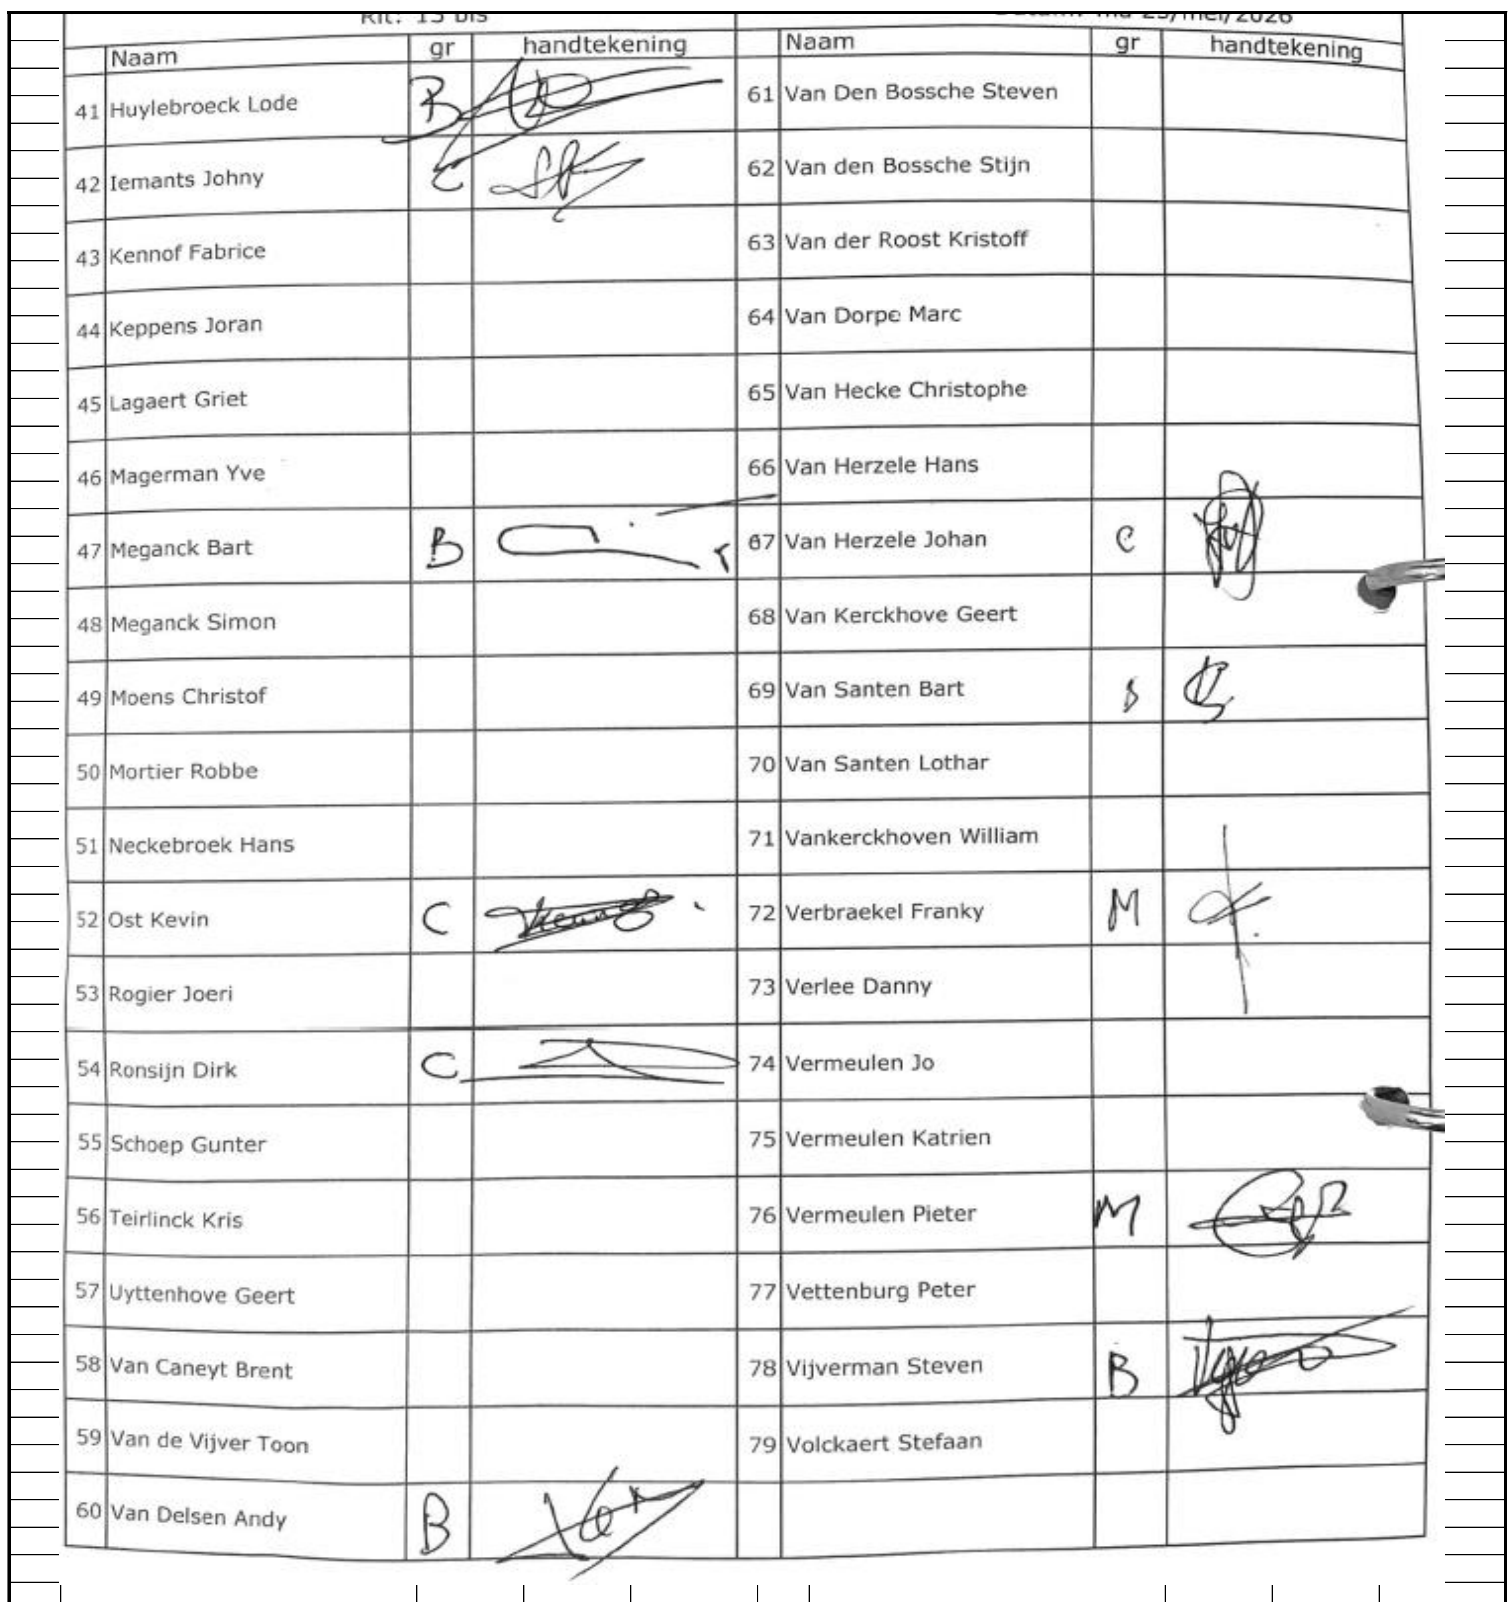 Rit: 15 bis
Naam gr handtekening
41 Huylebroeck Lode B
42 Iemants Johny C
43 Kennof Fabrice
44 Keppens Joran
45 Lagaert Griet
46 Magerman Yve
47 Meganck Bart B
48 Meganck Simon
49 Moens Christof
50 Mortier Robbe
51 Neckebroek Hans
52 Ost Kevin C
53 Rogier Joeri
54 Ronsijn Dirk C
55 Schoep Gunter
56 Teirlinck Kris
57 Uyttenhove Geert
58 Van Caneyt Brent
59 Van de Vijver Toon
60 Van Delsen Andy B
Datum: ma 25/mei/2026
Naam gr handtekening
61 Van Den Bossche Steven
62 Van den Bossche Stijn
63 Van der Roost Kristoff
64 Van Dorpe Marc
65 Van Hecke Christophe
66 Van Herzele Hans
67 Van Herzele Johan C
68 Van Kerckhove Geert
69 Van Santen Bart B
70 Van Santen Lothar
71 Vankerckhoven William
72 Verbraekel Franky M
73 Verlee Danny
74 Vermeulen Jo
75 Vermeulen Katrien
76 Vermeulen Pieter M
77 Vettenburg Peter
78 Vijverman Steven B
79 Volckaert Stefaan